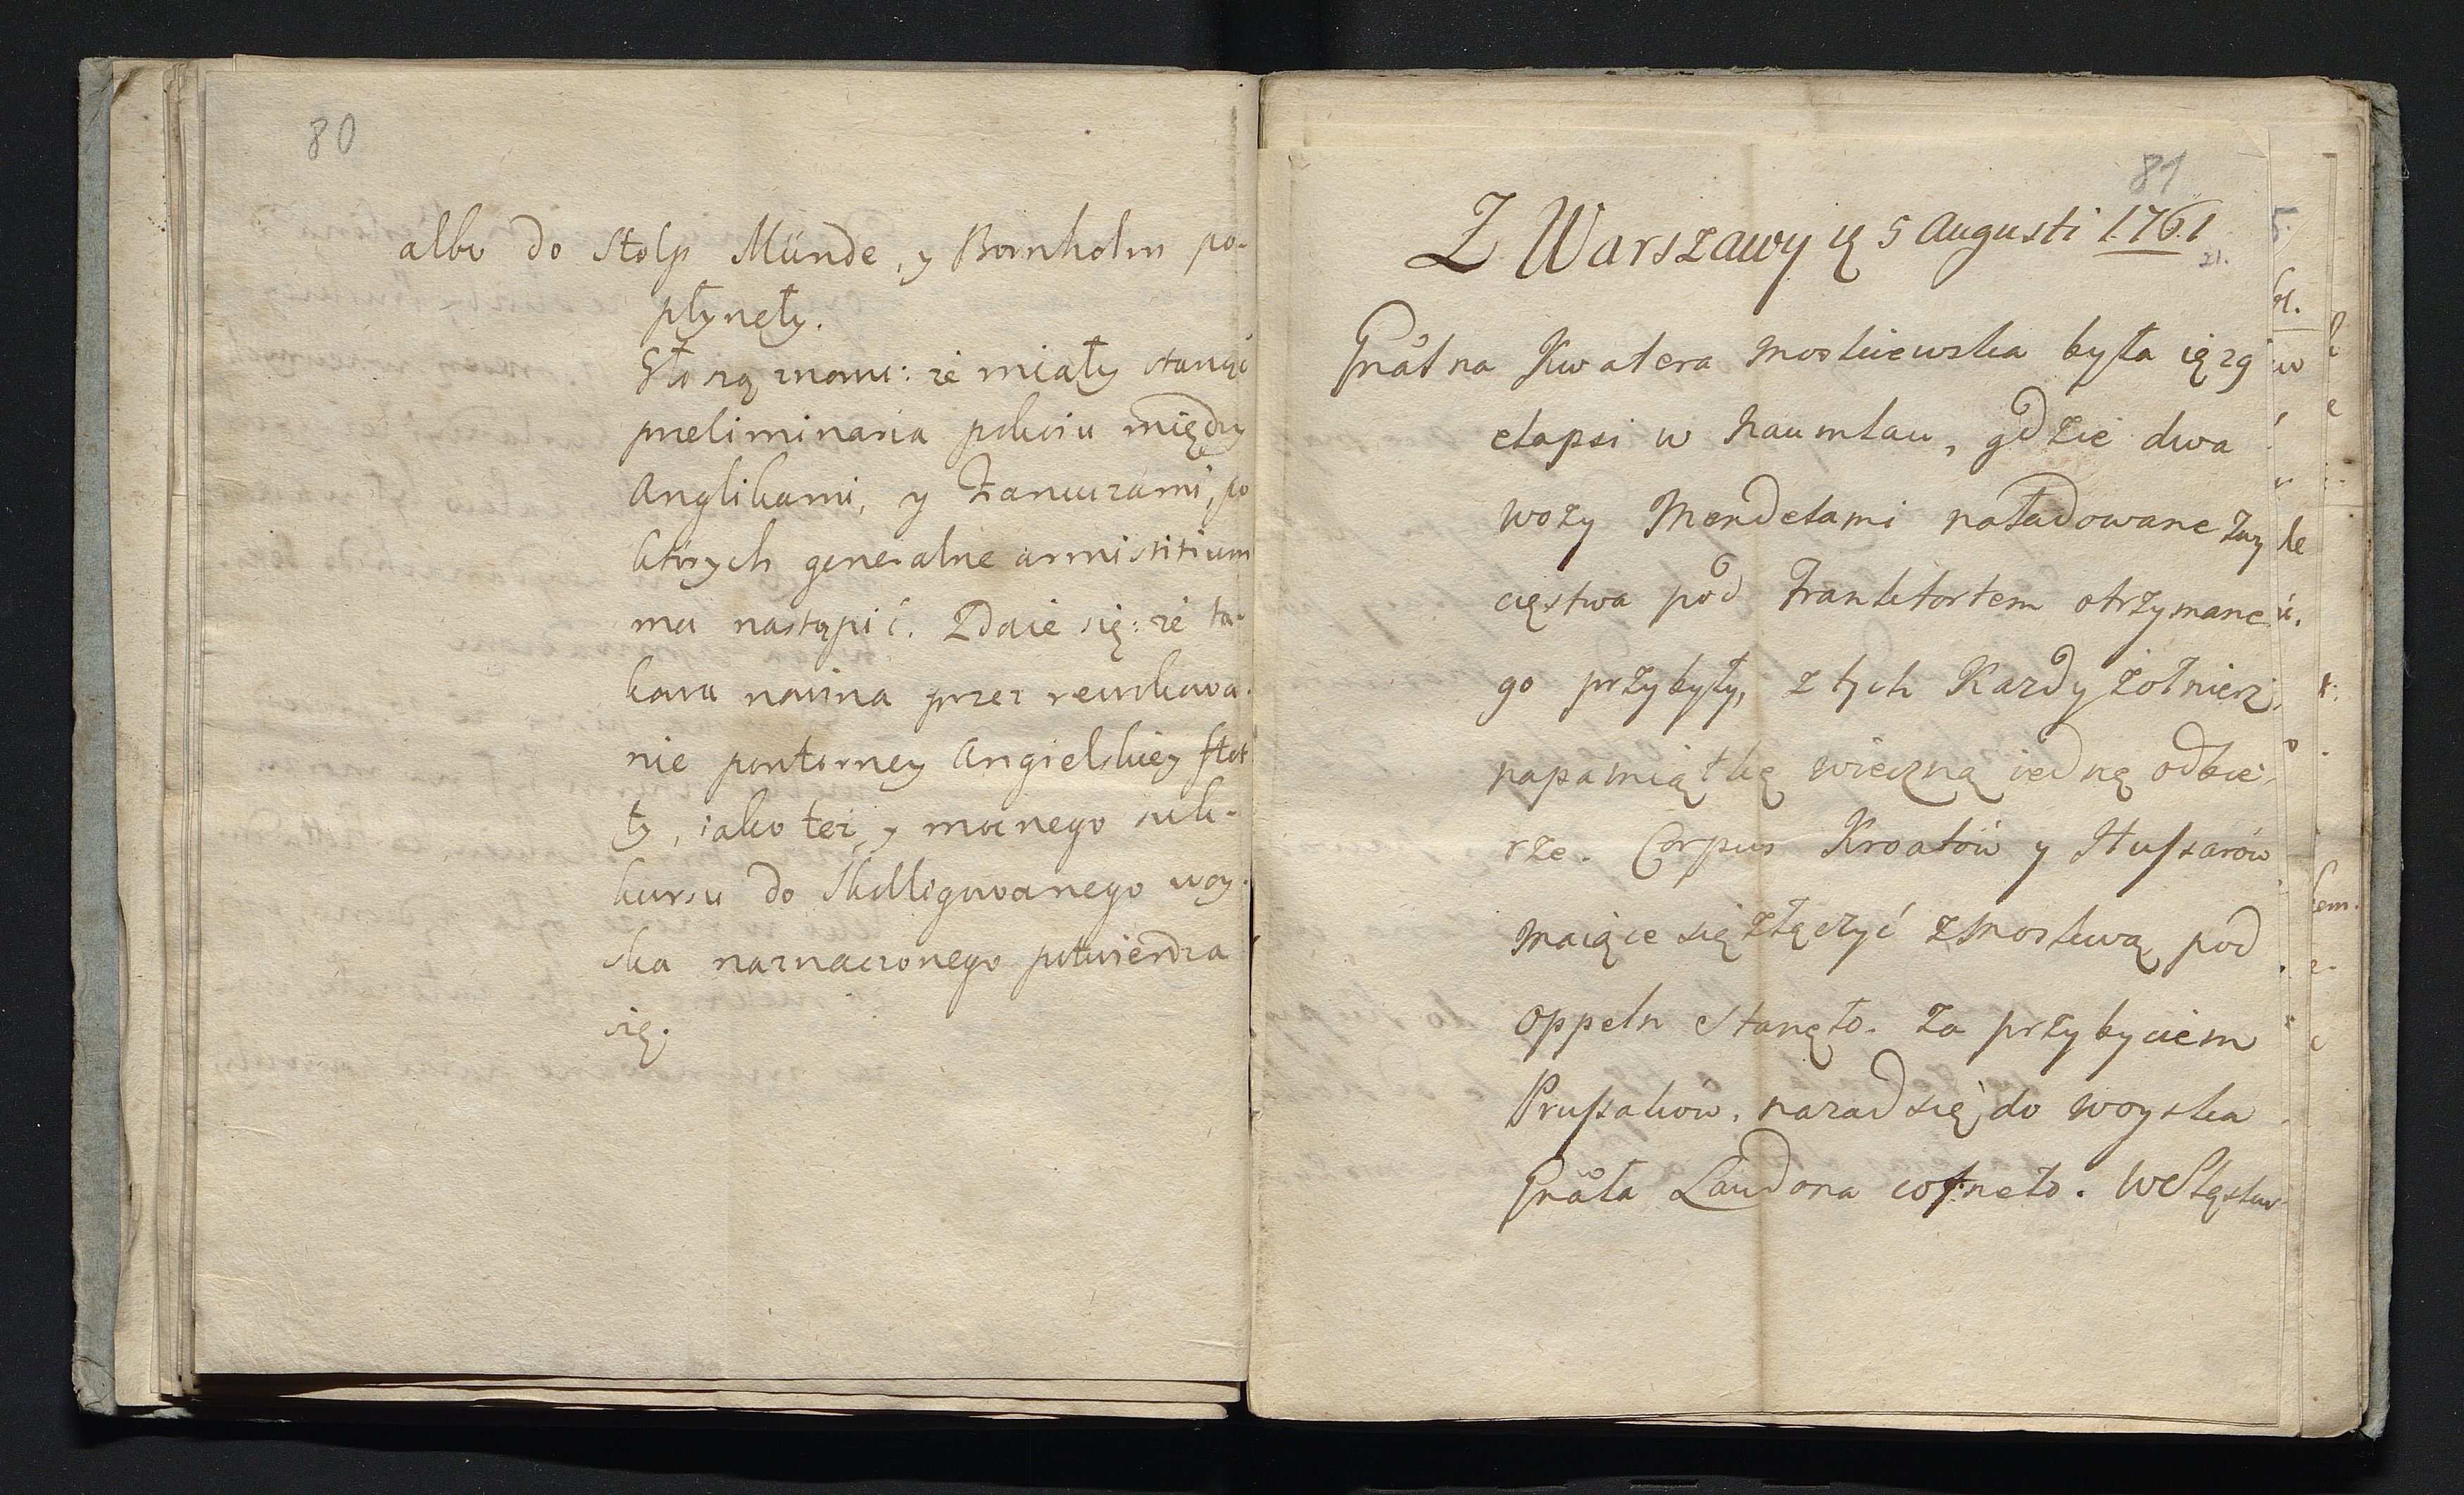 80
albo do Stolp Münde, y Bornholm po-
płynęły.
Głoszą znowu: że miały stanąć
preliminaria pokoiu między
Anglikami, y Francuzami, po
których generalne armistitium
ma nastąpić. Zdaie się: że ta-
kowa nowina przez rewokowa-
nie powtorney Angielskiey flot
ty, iako też y mocnego suk-
kursu do Skolligowanego woy-
ska naznaczonego potwierdza
się.
81
Z Warszawy d 5 Augusti 1761
21.
Gnałna Kwatera moskiewska była
elapsi w Naumlau, gdzie dwa
wozy Mendelami naładowane zwy
cięstwa pod Frankfortem otrzymane
go przybyły, z tych Kazdy żołnierz,
napamiątkę wieczną iedną odbie-
rze. Corpus Kroatów y Hussarów
maiące się złączyć z Moskwą pod
Oppeln Stanęło. Za przybyciem
Prussaków, nazad się do woyska
Gnała Laudona cofneło. W Sląsku